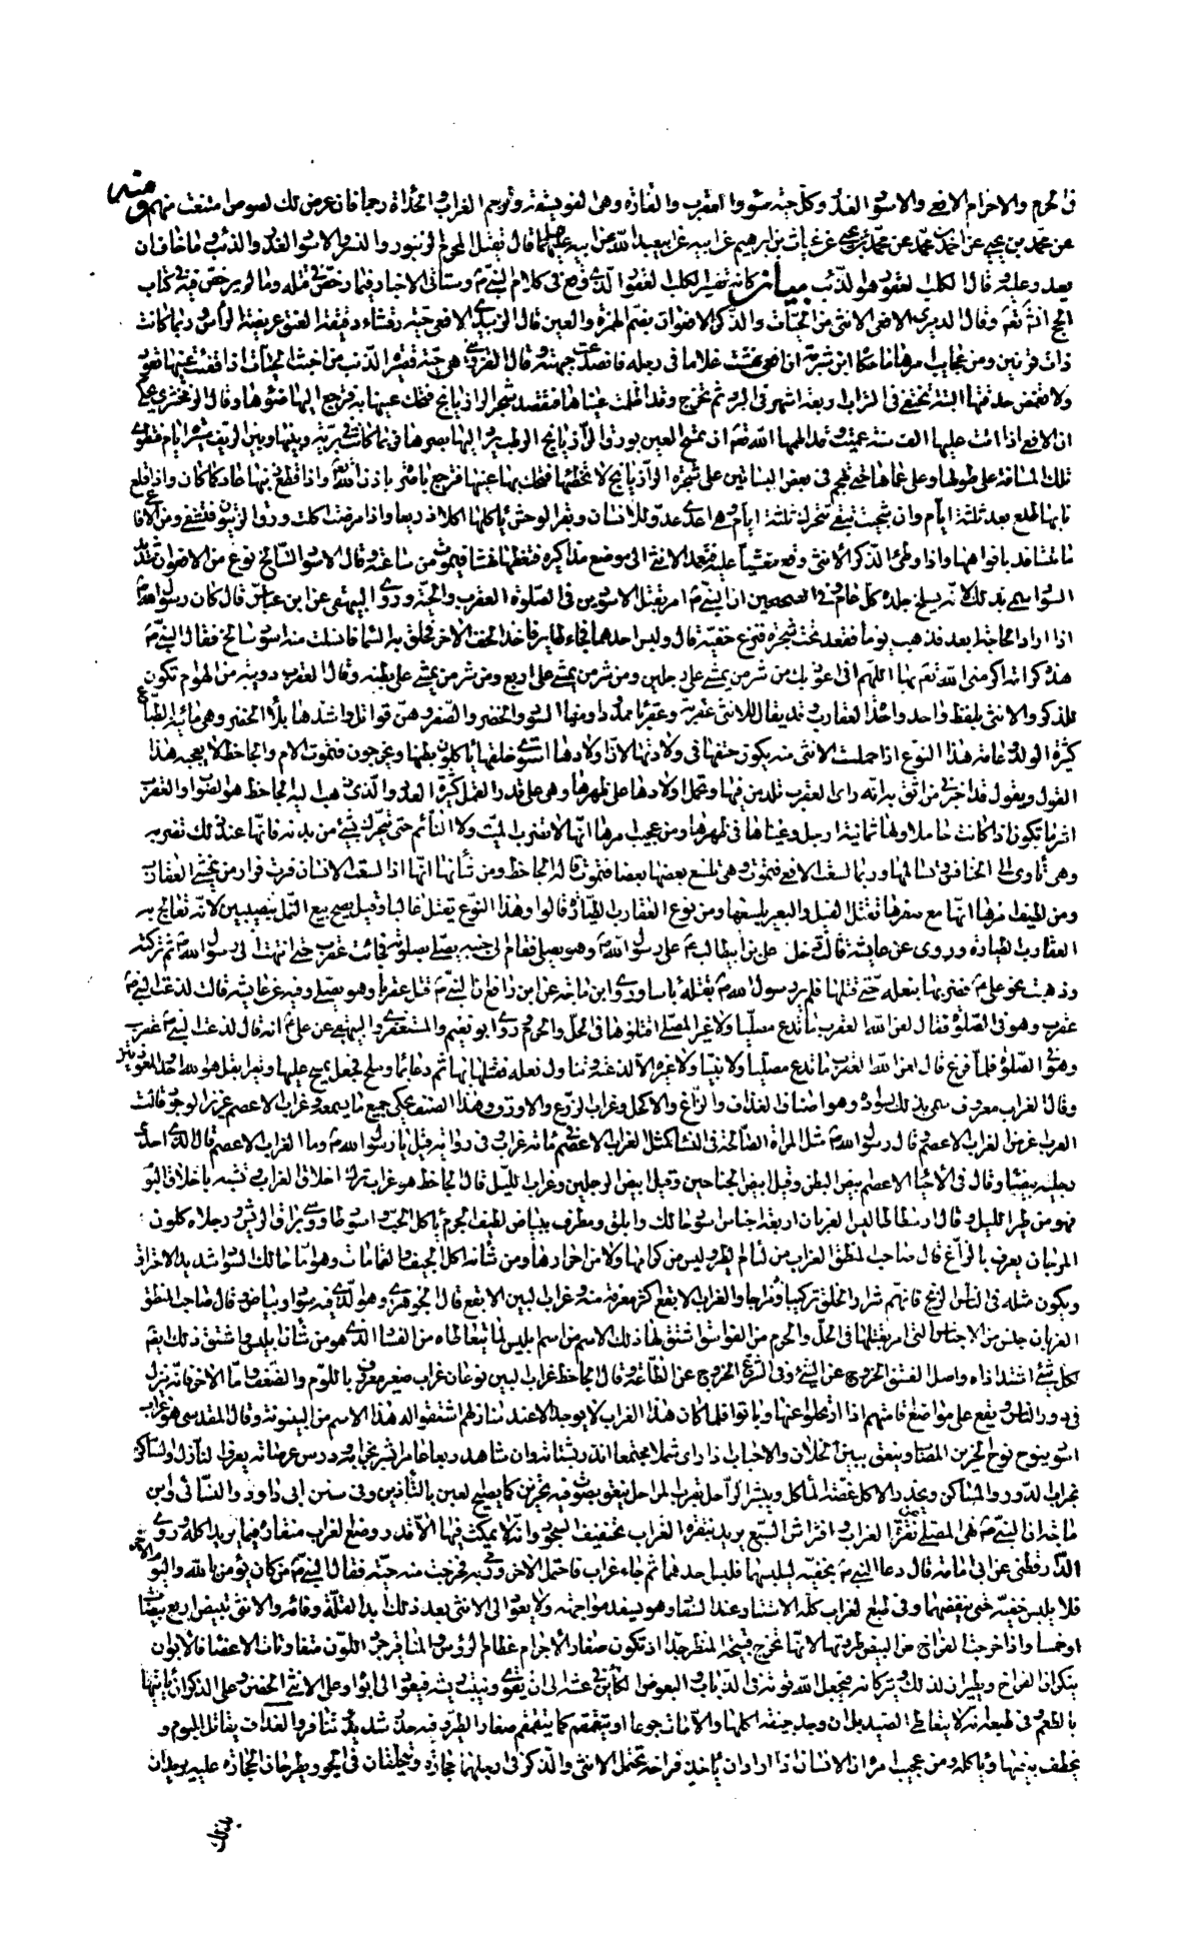 فى الحرم والاحرام الافعى والاسود الغدر وكل حية سوء والعقرب والفارة وهى الفويسقة وترجم الغراب والحداة رجما فان عرض لك لصوص امتنعت منهم ومنه
عن محمد بن يحيى عن احمد بن محمد عن محمد بن يحيى عن غياث بن ابراهيم عن ابيه عن ابى عبد الله عن ابيه قال يقتل المحرم الزنبور والنسر والاسود الغدر والذئب وما خاف ان
يعدو عليه وقال الكلب العقور هو الذئب بيان كانه تفسير الكلب العقور الذى وقع فى كلام النبى وستاتى الاخبار فيما رخص فى قتله وما لم يرخص فيه فى كتاب
الحج انشاء تعم وقال الدميرى الافعى الانثى من الحيات والذكر الافعوان بضم الهمزة والعين قال الزبيدى الافعى حية رقشاء دقيقة العنق عريضة الراس وربما كانت
ذات قرنين ومن عجايب امرها ما حكاه ابن شبرمة ان افعى نهشت غلاما فى رجله فانصدعت جبهته وقال القزوينى هى حية قصيرة الذنب من اخبث الحيات اذا فقئت عينها تعود
ولا تغمض حدقتها البتة تختفى فى التراب اربعة اشهر فى البرد ثم تخرج وقد اظلمت عيناها فتقصد شجر الرازيانج فتحك عينها به فترجع اليها ضوءها وقال الزمخشرى يحكى
ان الافعى اذا اتت عليها الف سنة عميت وقد الهمها الله تعم ان تمسح العين بورق الرازيانج الرطب يرد اليها بصرها فربما كانت فى برية وبينها وبين الريف مسيرة ايام فتطوى
تلك المسافة على طولها وعلى عماها حتى تهجم فى بعض البساتين على شجرة الرازيانج لا تخطئها فتحك بها عينها فترجع باصرة باذن الله واذا قطع ذنبها عاد كما كان واذا قلع
نابها طلع بعد ثلثة ايام وان شجت تبقى تتحرك ثلثة ايام وهى اعدى عدو للانسان وبقر الوحش ياكلها اكلا ذريعا واذا مرضت اكلت ورق الزيتون فتشفى ومن الافاعى
ما تتسافد بافواهها واذا وطئ الذكر الانثى وقع مغشيا عليه فتعمد الانثى الى موضع مذاكيره فتقطعها نهشا فيموت من ساعته وقال الاسود السالخ نوع من الافعوان شديد
السواد سمى بذلك لانه يسلخ جلده كل عام وفى الصحيحين ان النبى امر بقتل الاسودين فى الصلوة العقرب والحية وروى البيهقى عن ابن عباس قال كان رسول الله
اذا اراد الحاجة ابعد فذهب يوما فقعد تحت شجرة فنزع خفيه قال ولبس احدهما فجاء طاير فاخذ الخف الاخر فحلق به فى السما فانسلت منه اسود سالخ فقال النبى
هذه كرامة اكرمنى الله تعم بها اللهم انى اعوذ بك من شر من يمشى على رجلين ومن شر من يمشى على اربع ومن شر من يمشى على بطنه وقال العقرب دويبة من الهوام تكون
للذكر والانثى بلفظ واحد واحدة العقارب وقد يقال للانثى عقربة وعقرباء ممدود ومنها السود والخضر والصفر وهن قواتل واشدها بلاء الخضر وهى مائية الطباع
كثيرة الولد وعامة هذا النوع اذا حملت الانثى منه يكون حتفها فى ولادتها لان اولادها اذا استوى خلقها ياكلون بطنها ويخرجون فتموت الام والجاحظ لا يعجبه هذا
القول ويقول قد اخبرنى من اثق به انه راى العقرب تلد من فيها وتحمل اولادها على ظهرها وهى على قدر القمل كثيرة العدد والذى ذهب اليه الجاحظ هو الصواب والعقرب
اشر ما تكون اذا كانت حاملا ولها ثمانية ارجل وعيناها فى ظهرها ومن عجيب امرها انها لا تضرب الميت ولا النائم حتى يتحرك بشئ من بدنه فانها عند ذلك تضربه
وهى تاوى الى الخنافس وتسالمها وربما لسعت الافعى فتموت وهى تلسع بعضها بعضا فتموت قاله الجاحظ ومن شانها انها اذا لسعت الانسان فرت فرار من يخشى العقاب
ومن لطيف امرها انها مع صغرها تقتل الفيل والبعير بلسعها ومن نوع العقارب الطيارة قالوا وهذا النوع يقتل غالبا وقيل يصح بيع النمل بنصيبين لانه تعالج به
العقارب الطيارة وروى عن عايشة قالت دخل على بن ابيطالب على رسول الله وهو يصلى فقام الى جنبه يصلى بصلوته فجائت عقرب حتى انتهت الى رسول الله ثم تركته
وذهبت نحو على فضربها بنعله حتى قتلها فلم ير رسول الله بقتله باسا وروى ابن ماجة عن ابن رافع ان النبى قتل عقربا وهو يصلى وفيه عن عايشة قالت لدغت النبى
عقرب وهو فى الصلوة فقال لعن الله العقرب ما تدع مصليا ولا غير المصلى اقتلوها فى الحل والحرم وروى ابو نعيم والمستغفرى والبيهقى عن على انه قال لدغت النبى عقرب
وهو فى الصلوة فلما فرغ قال لعن الله العقرب ما تدع مصليا ولا نبيا ولا غيره الا لدغته وتناول نعله فقتلها بها ثم دعا بماء وملح فجعل يمسح عليها ويقرا بقل هو الله احد والمعوذتين
وقال الغراب معروف سمى بذلك لسواده وهو اصناف الغداف والزاغ والاكحل وغراب الزرع والاورق وهذا الصنف يحكى جميع ما يسمعه وغراب الاعصم عزيز الوجود قالت
العرب اعز من الغراب الاعصم قال رسول الله مثل المراة الصالحة فى النسا كمثل الغراب الاعصم فى مائة غراب وفى رواية قيل يا رسول الله وما الغراب الاعصم قال الذى احدى
رجليه بيضا وقال فى الاحيا الاعصم ابيض البطن وقيل ابيض الجناحين وقيل ابيض الرجلين وغراب الليل قال الجاحظ هو غراب ترك اخلاق الغراب وتشبه باخلاق البوم
فهو من طير الليل وقال ارسطاطاليس الغربان اربعة اجناس اسود حالك وابلق ومطرف ببياض لطيف الجرم ياكل الحب واسود طاووسى براق الريش ورجلاه كلون
المرجان يعرف بالزاغ قال صاحب المنطق الغراب من لئام الطير وليس من كرامها ولا من احرارها ومن شانه اكل الجيف والقمامات وهو اما حالك السواد شديد الاحتراق
ويكون مثله فى الناس الزنج فانهم شرار الخلق تركيبا ومزاجا والغراب الابقع اكثر معرفة منه وغراب البين الابقع قال الجوهرى وهو الذى فيه سواد وبياض قال صاحب المنطق
الغربان جنس من الاجناس التى امر بقتلها فى الحل والحرم من الفواسق اشتق لها ذلك الاسم من اسم ابليس لما يتعاطاه من الفساد الذى هو من شان ابليس واشتق ذلك ايضا
لكل شئ اشتد اذاه واصل الفسق الخروج عن الشئ وفى الشرع الخروج عن الطاعة وقال الجاحظ غراب البين نوعان غراب صغير معروف باللوم والضعف واما الاخر فانه ينزل
فى دور الناس ويقع على مواضع اقامتهم اذا ارتحلوا عنها وبانوا فلما كان هذا الغراب لا يوجد الا عند منازلهم اشتقوا له هذا الاسم من البينونة وقال المقدسى هو غراب
اسود ينوح نوح الحزين المصاب وينعق ببين الخلان والاحباب اذا راى شملا مجتمعا انذر بشتاته وان شاهد ربعا عامرا بشر بخرابه ودروس عرصاته يعرف النازل والساكن
بخراب الدور والمساكن ويحذر الاكل غصة الماكل ويبشر الراحل بقرب المراحل ينعق بصوت فيه تحزين كما يصيح المعلن بالتاذين وفى سنن ابى داود والنسائى وابن
ماجة ان النبى نهى المصلى عن نقرة الغراب وافتراش السبع يريد بنقرة الغراب تخفيف السجود وانه لا يمكث فيها الا قدر وضع الغراب منقاره فيما يريد اكله وروى
الدارقطنى عن ابى امامة قال دعا النبى بخفيه ليلبسهما فلبس احدهما ثم جاء غراب فاحتمل الاخر ورمى به فخرجت منه حية فقال النبى من كان يؤمن بالله واليوم الاخر
فلا يلبس خفيه حتى ينفضهما وفى طبع الغراب كله الاستتار عند السفاد وهو يسفد مواجهة ولا يعود الى الانثى بعد ذلك ابدا لقلة وفائه والانثى تبيض اربع بيضات
او خمسا واذا خرجت الفراخ من البيض طردتها لانها تخرج قبيحة المنظر جدا اذ تكون صغار الاجرام عظام الرؤس والمناقير جرد اللون متفاوتات الاعضا فالابوان
ينكران الفراخ ويطيران لذلك ويتركانه فيجعل الله قوته فى الذباب والبعوض الكائن فى عشه الى ان يقوى وينبت ريشه فيعود اليه ابواه وعلى الانثى الحضن وعلى الذكر ان ياتيها
بالطعم وفى طبعه انه لا يتعاطى الصيد بل ان وجد جيفة اكلها والا مات جوعا او يتقمقم كما يتقمقم صغار الطير وفيه حذر شديد وتنافر والغداف يقاتل البوم و
يخطف بيضها وياكله ومن عجيب امره ان الانسان اذا اراد ان ياخذ فراخه تحتمل الانثى والذكر فى رجليهما حجارة ويتحلقان فى الجو ويطرحان الحجارة عليه يريدان
بذلك